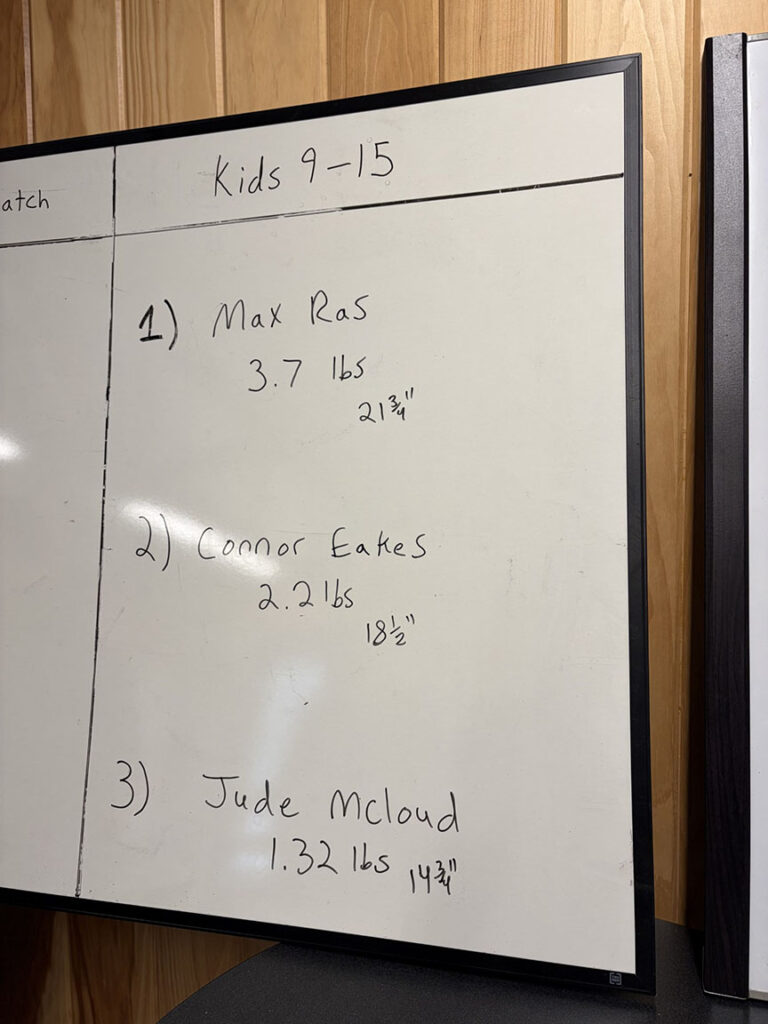 atch
Kids 9-15
1) Max Ras
3.7 lbs
21 3/4"
2) Connor Eakes
2.2 lbs
18 1/2"
3) Jude Mcloud
1.32 lbs 14 3/4"